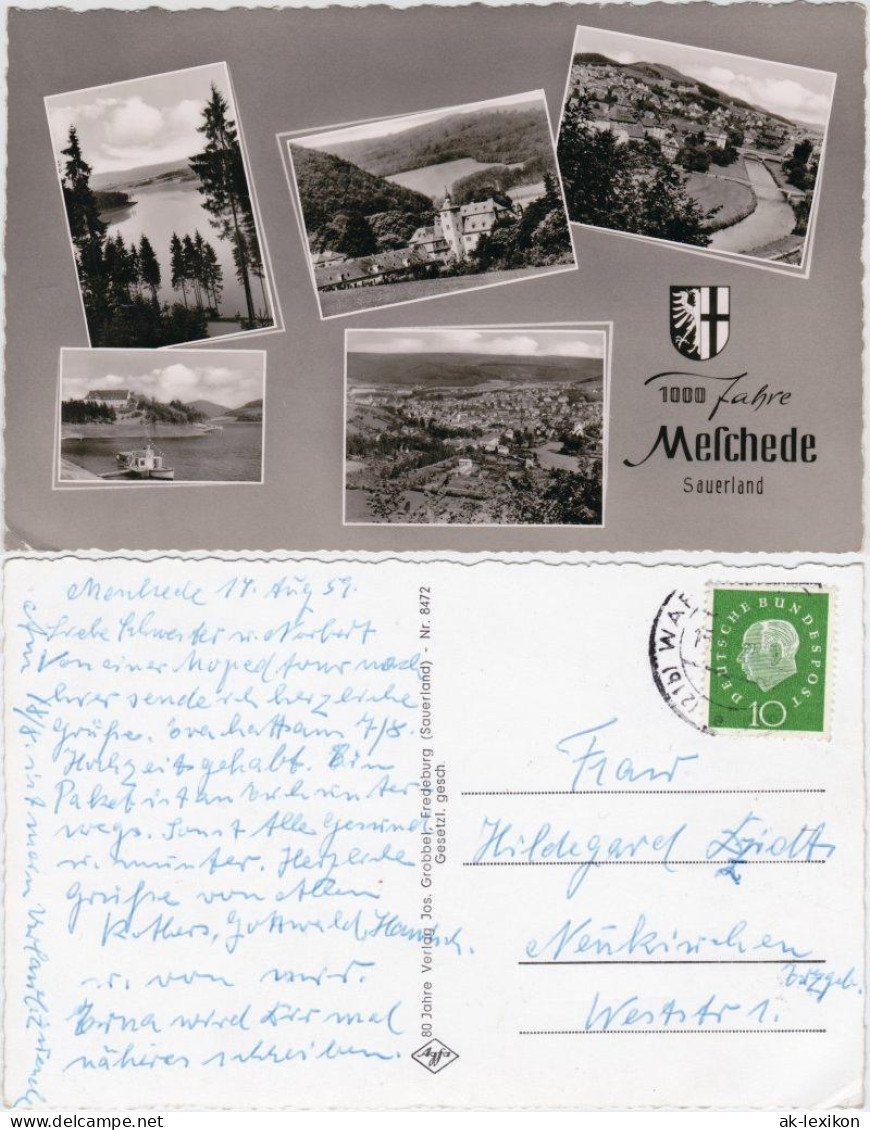 1000 Jahre
Meschede
Sauerland
17. Aug 59.
Liebe Schwester u. Norbert
Von einer Mopedtour nach
hier sende ich herzliche
Grüße. hatt am 7/8.
Hochzeit gehabt. Ein
Paket ist an Euch unter
wegs. Sonst Alle Gesund
u. munter. Herzliche
Grüße von Allen
Gottwald, Hanisch.
u. von mir.
Erna wird Dir mal
näheres schreiben.
Am 18/8. ist mein Urlaub zu ende
80 Jahre Verlag Jos. Grobbel, Fredeburg (Sauerland) - Nr. 8472
Gesetzl. gesch.
Agfa
(21b) WAR
DEUTSCHE BUNDESPOST
10
Frau
Hildegard
Neukirchen
Erzgeb.
Weststr 1.
ak-lexikon.com